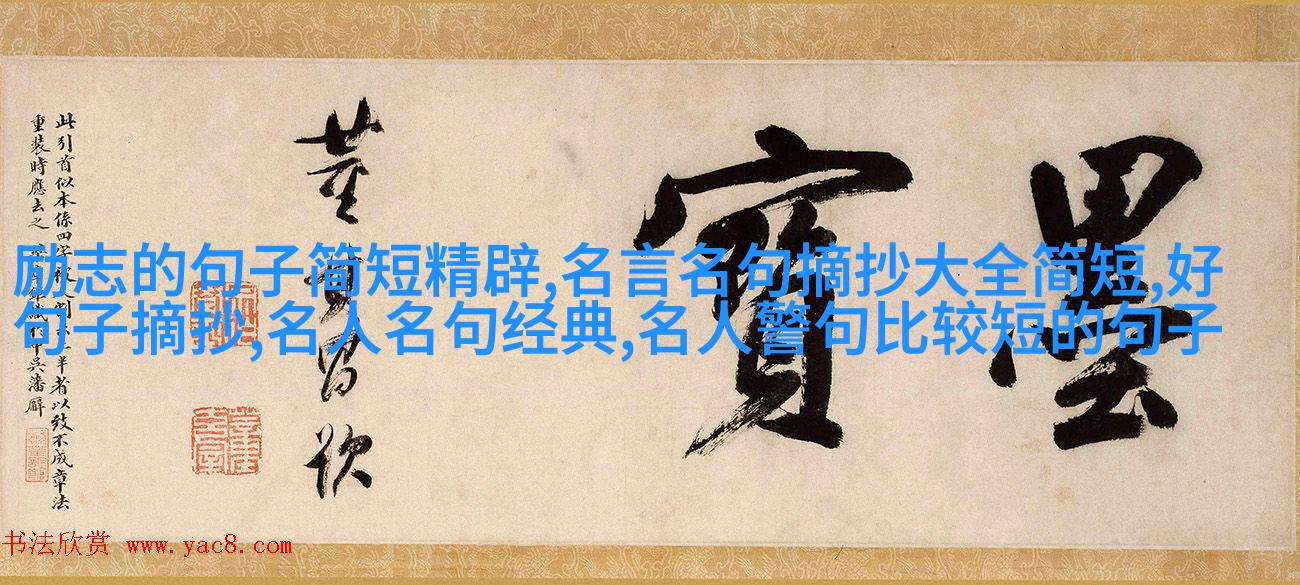 励志的句子简短精辟,名言名句摘抄大全简短,好
句子摘抄,名人名句经典,名人警句比较短的句子
墨寶
董其昌
此引首似本係四字半者以致不成章法
重裝時應去之
书法欣赏 www.yac8.com